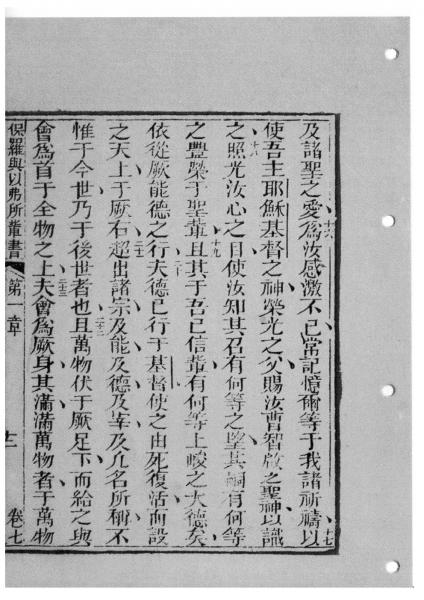 及諸聖之愛為汝感激不已常記憶爾等于我諸祈禱以
十六
十七
使吾主耶穌基督之神榮光之父賜汝曹智啟之聖神以識
之照光汝心之目使汝知其召有何等之望其嗣有何等
十八
之豐榮于聖輩且其于吾已信輩有何等上峻之大德矣
十九
依從厥能德之行夫德已行于基督使之由死復活而設
二十
之天上于厥右超出諸宗及能及德及宰及凡名所稱不
二十一
惟于今世乃于後世者也且萬物伏于厥足下而給之與
二十二
會為首于全物之上夫會為厥身其滿滿萬物者于萬物
二十三
保羅與以弗所輩書
第一章
十二
卷七